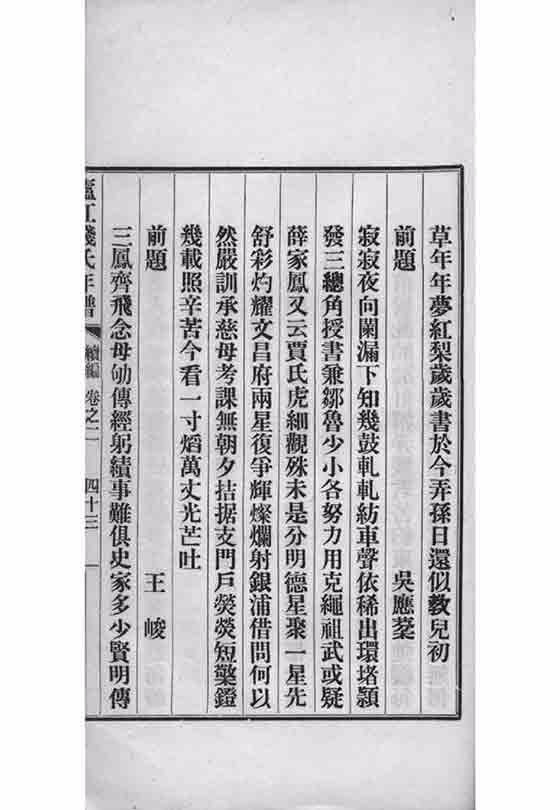 草年年夢紅梨歲歲書於今弄孫日還似教兒初
前題 吳應棻
寂寂夜向闌漏下知幾鼓軋軋紡車聲依稀出環堵潁
發三總角授書兼鄒魯少小各努力用克繩祖武或疑
薛家鳳又云賈氏虎細觀殊未是分明德星聚一星先
舒彩灼耀文昌府兩星復爭輝燦爛射銀浦借問何以
然嚴訓承慈母考課無朝夕拮据支門戶熒熒短檠鐙
幾載照辛苦今看一寸熖萬丈光芒吐
前題 王峻
三鳳齊飛念母劬傳經躬績事難俱史家多少賢明傳
廬江錢氏年譜 續編 卷之二 四十三